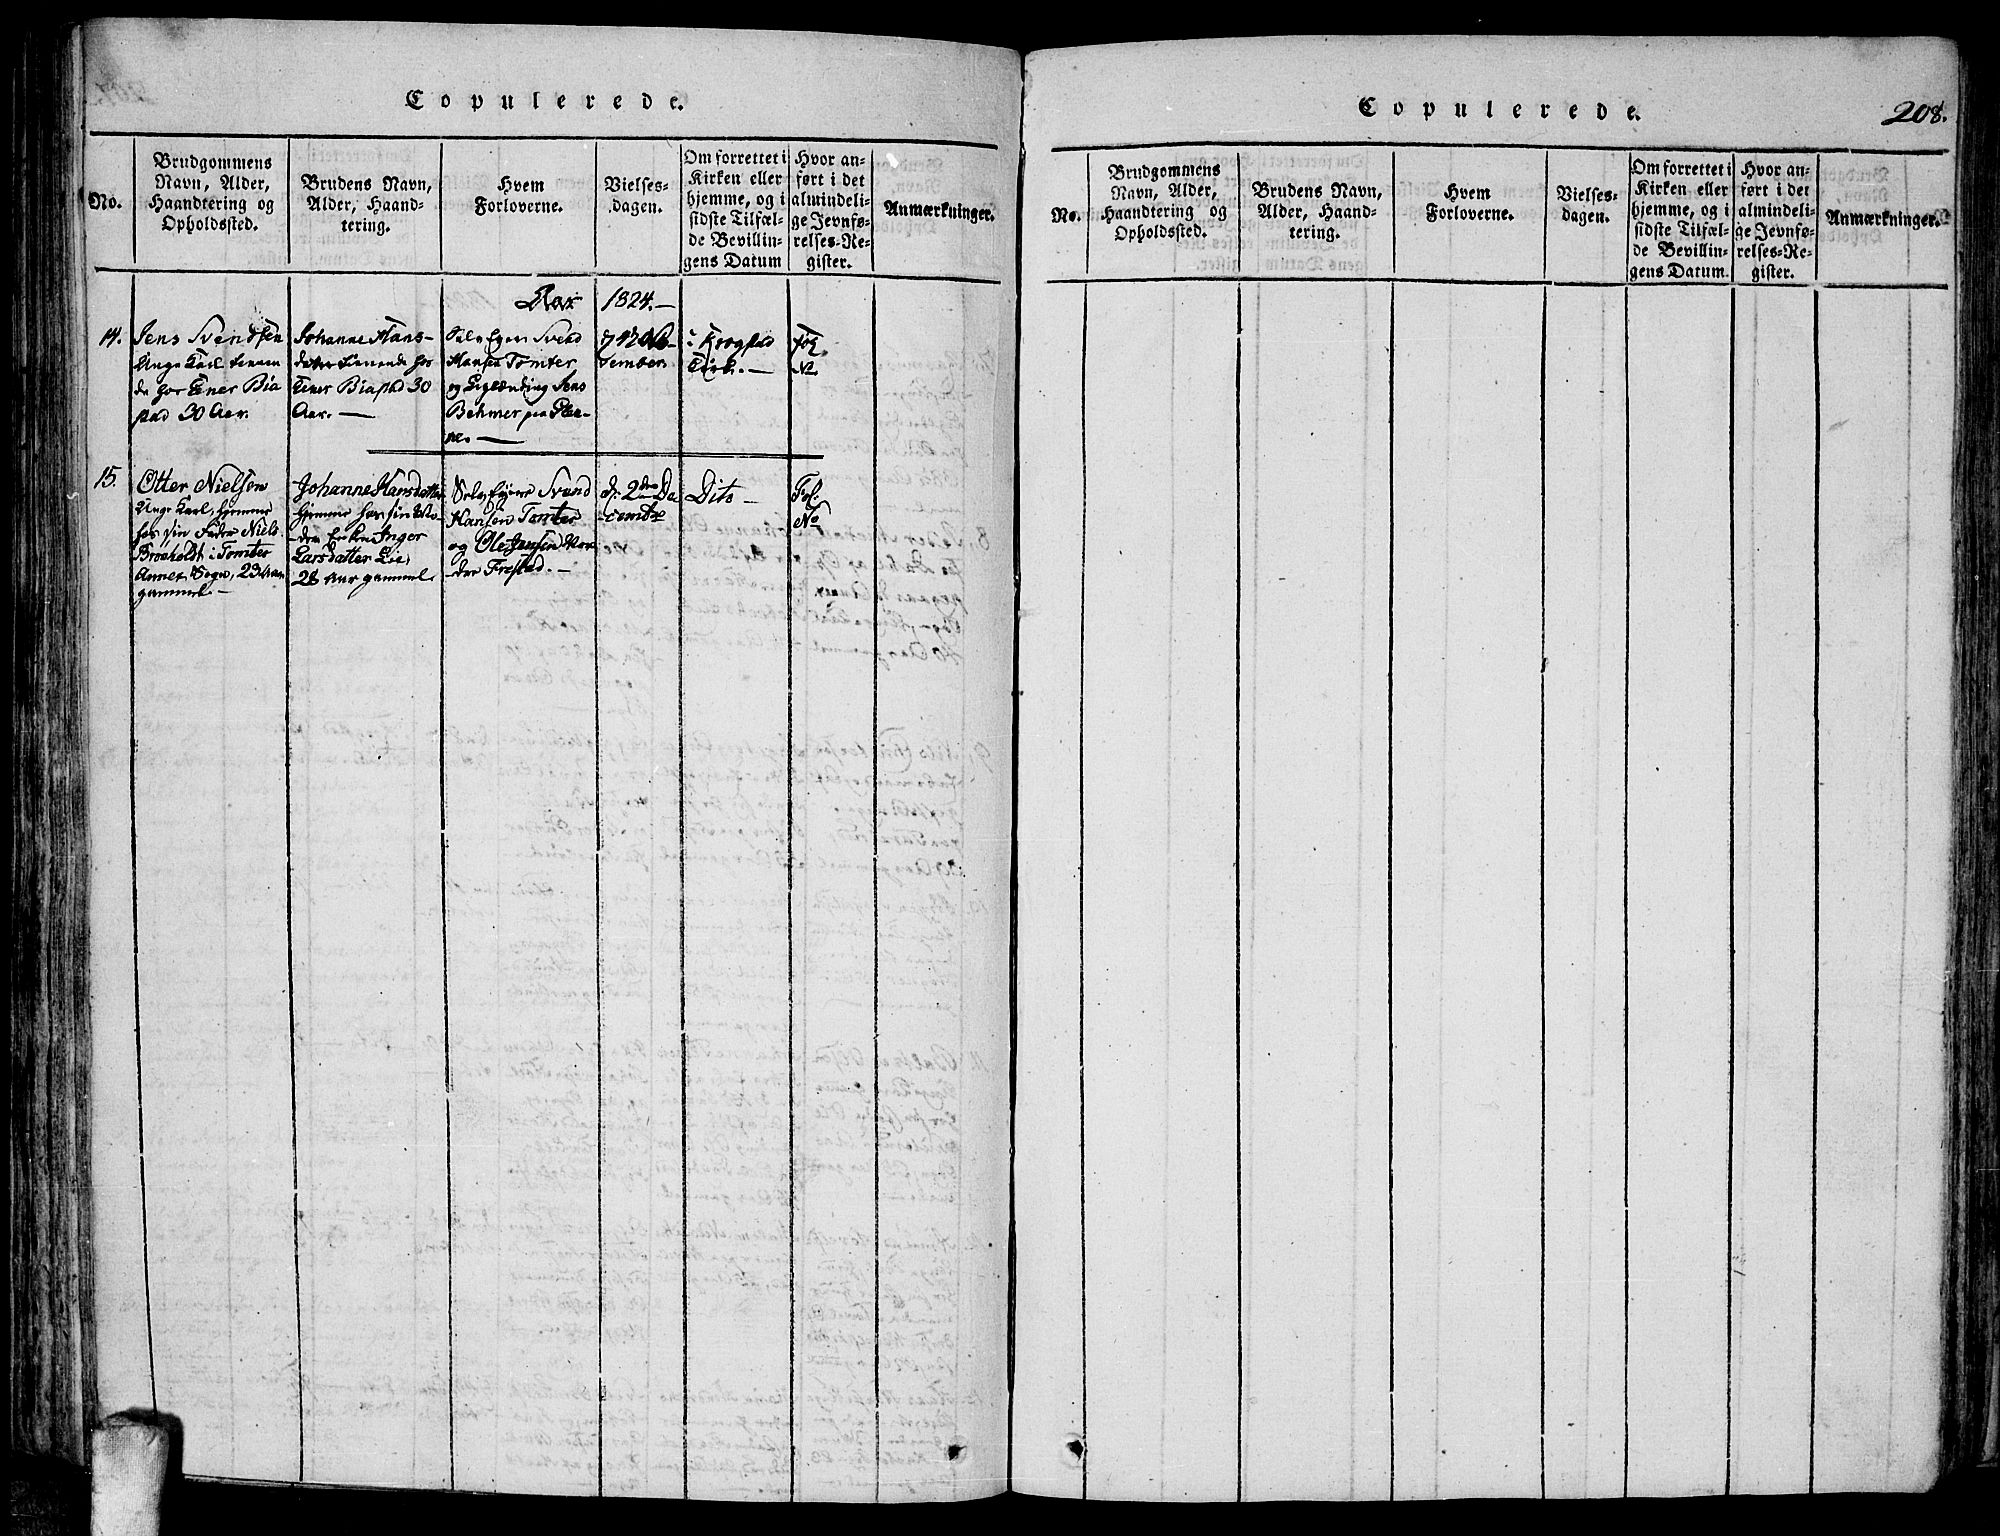 Copulerede.
No.
Brudgommens
Navn, Alder,
Haandtering og
Opholdssted.
Brudens Navn,
Alder, Haand-
tering.
Hvem
Forloverne.
Vielses-
dagen.
Om forrettet i
Kirken eller
hjemme, og i
sidste Tilfæl-
de Bevillin-
gens Datum
Hvor an-
ført i det
almindeli-
ge Jevnfø-
relses-Re-
gister.
Anmærkninger.
Aar 1824.-
14.
Jens Svendsen
Unge Karl tienen
de hos Ener Bia
stad 30 Aar.
Johanne Hans-
datter tienende hos
Ener Biastad 30
Aar. —
Selv Ejer Svend
Hansen Tomter
og Jens
Behmer paa
7
tember
i Krogstad
Kirk. —
Fol
No
15.
Otter Nielsen
Unge Karl, hjemme
hos sin Fader Niels
Broholdt i Tomter
Annex Sogn, 23 Aar
gammel. —
Johanne Hansdatter
hjemme hos sin Mo-
der Enken Inger
Larsdatter Lie,
28 Aar gammel.
Selv Ejere Svend
Hansen Tomter
og Ole Jensen Nor-
dre Frestad. —
d. 2den De
cember
Dito —
Fol.
No
Copulerede.
208.
No.
Brudgommens
Navn, Alder,
Haandtering og
Opholdssted.
Brudens Navn,
Alder, Haand-
tering.
Hvem
Forloverne.
Vielses-
dagen.
Om forrettet i
Kirken eller
hjemme, og i
sidste Tilfæl-
de Bevillin-
gens Datum.
Hvor an-
ført i det
almindeli-
ge Jevnfø-
relses-Re-
gister.
Anmærkninger.